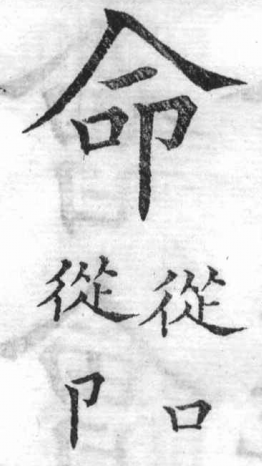 命
從口
從卩